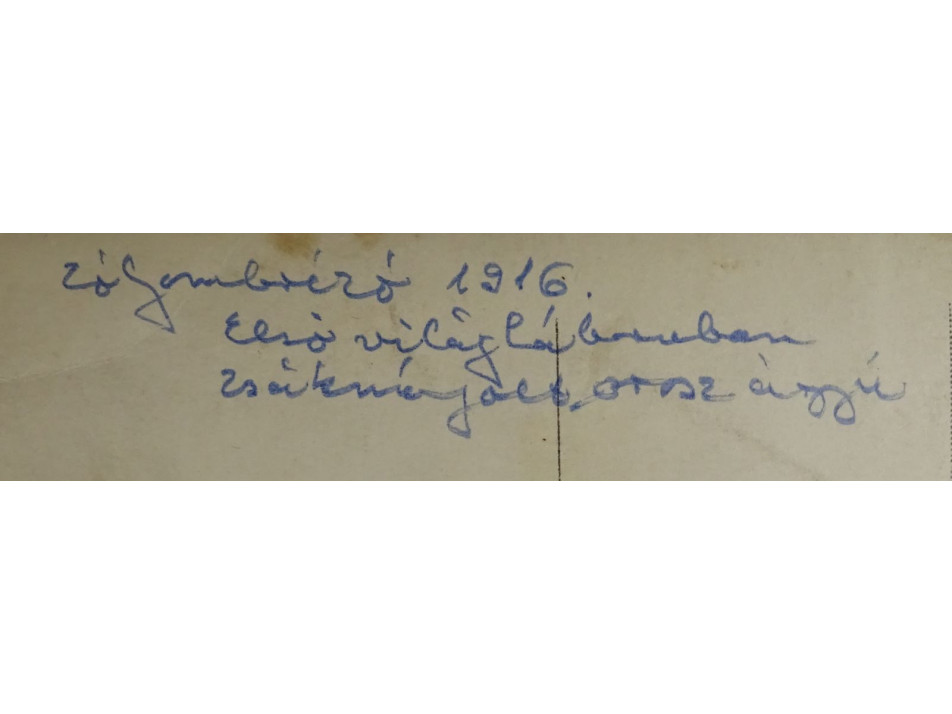 Zólyombrézó 1916.
Első világháboruban
zsákmányolt orosz ágyú